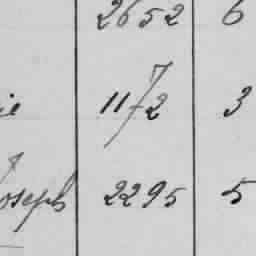 2652 6
ie 1172 3
Joseph 2295 5